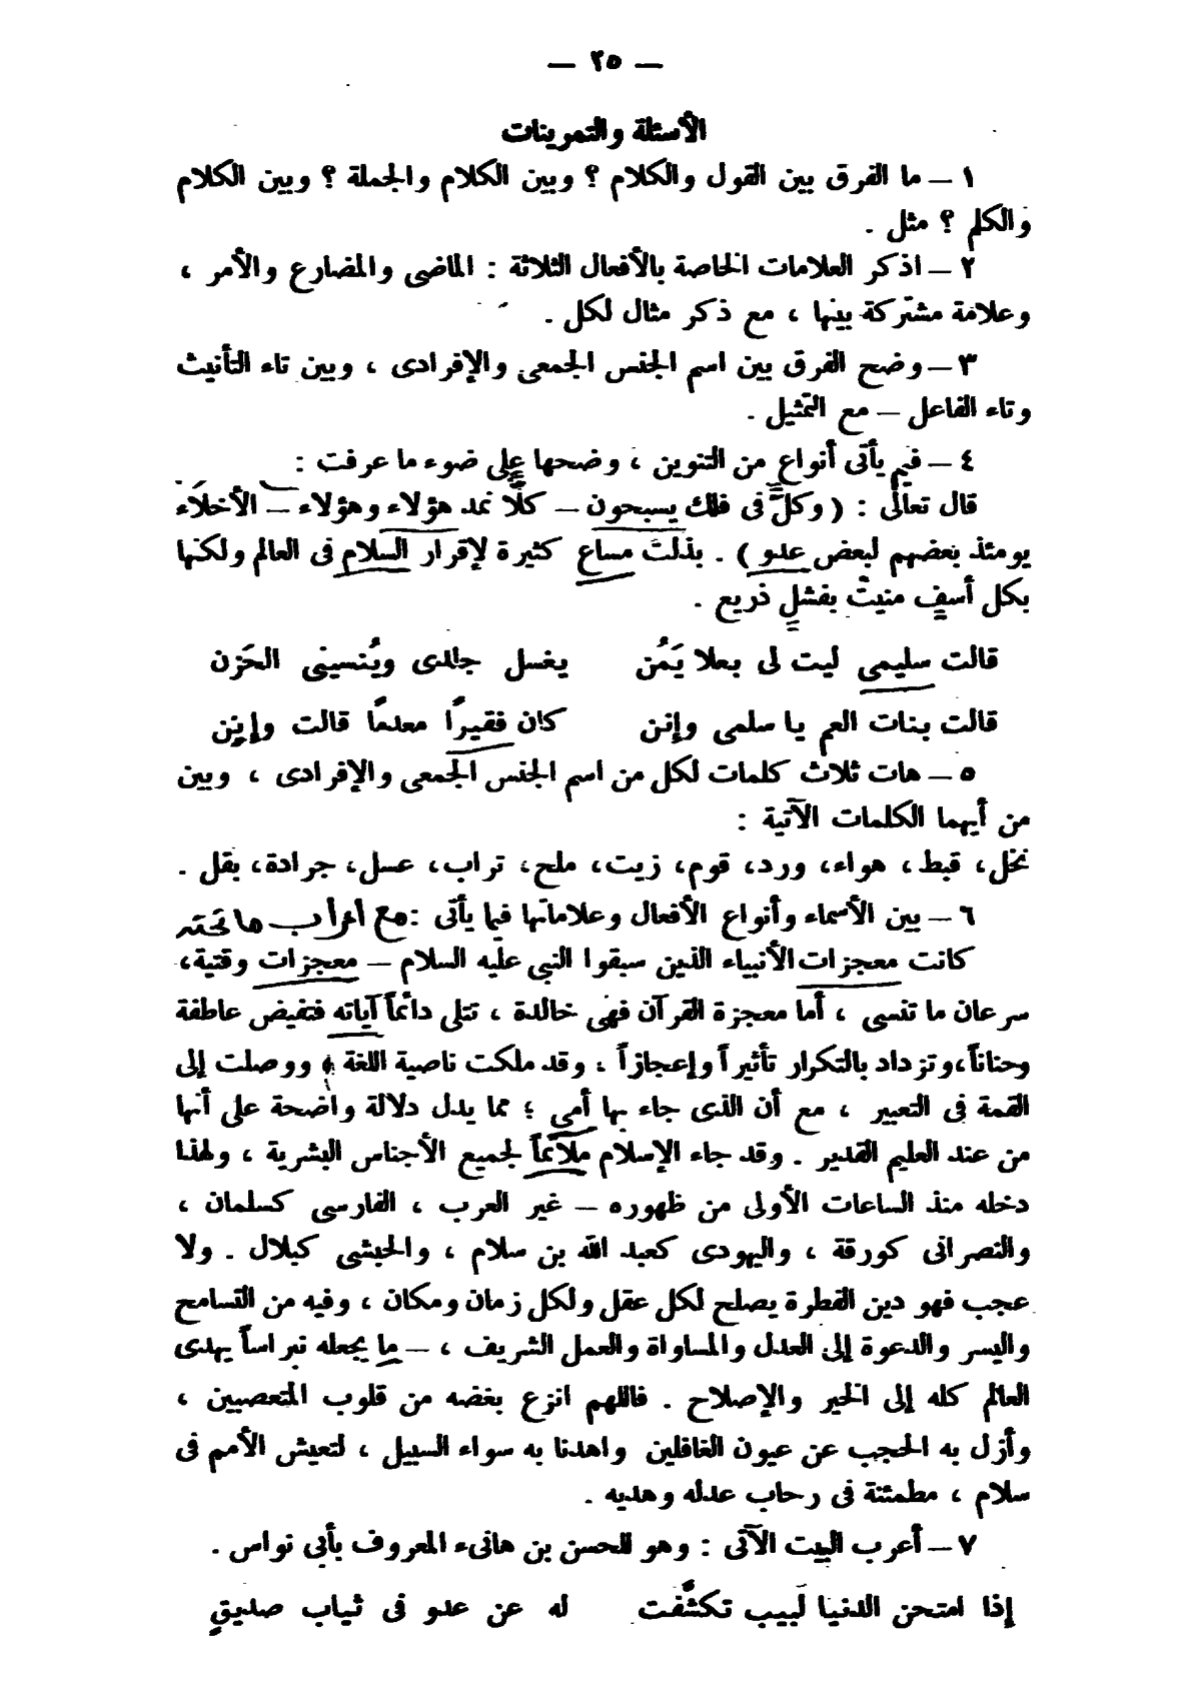 — ٢٥ —
الأسئلة والتمرينات
١ — ما الفرق بين القول والكلام ؟ وبين الكلام والجملة ؟ وبين الكلام
والكلم ؟ مثل .
٢ — اذكر العلامات الخاصة بالأفعال الثلاثة : الماضى والمضارع والأمر ،
وعلامة مشتركة بينها ، مع ذكر مثال لكل .
٣ — وضح الفرق بين اسم الجنس الجمعى والإفرادى ، وبين تاء التأنيث
وتاء الفاعل — مع التمثيل .
٤ — فيم يأتى أنواع من التنوين ، وضحها على ضوء ما عرفت :
قال تعالى : ( وكلٌّ فى فلك يسبحون — كلًّا نمد هؤلاء وهؤلاء — الأخلاء
يومئذ بعضهم لبعض عدو ) . بذلت مساع كثيرة لإقرار السلام فى العالم ولكنها
بكل أسفٍ منيتْ بفشلٍ ذريع .
قالت سليمى ليت لى بعلا يَمُن يغسل جلدى ويُنسينى الحَزن
قالت بنات العم يا سلمى وإنن كان فقيرًا معدمًا قالت وإنن
٥ — هات ثلاث كلمات لكل من اسم الجنس الجمعى والإفرادى ، وبين
من أيهما الكلمات الآتية :
نخل، قبط ، هواء، ورد، قوم، زيت، ملح، تراب، عسل، جرادة، بقل .
٦ — بين الأسماء وأنواع الأفعال وعلاماتها فيما يأتى : مع اعراب ما تحته
كانت معجزات الأنبياء الذين سبقوا النبى عليه السلام — معجزات وقتية،
سرعان ما تنسى ، أما معجزة القرآن فهى خالدة ، تتلى دائماً آياته فتفيض عاطفة
وحناناً، وتزداد بالتكرار تأثيراً وإعجازاً ، وقد ملكت ناصية اللغة ، ووصلت إلى
القمة فى التعبير ، مع أن الذى جاء بها أمى ؛ مما يدل دلالة واضحة على أنها
من عند العليم القدير . وقد جاء الإسلام ملائماً لجميع الأجناس البشرية ، ولهذا
دخله منذ الساعات الأولى من ظهوره — غير العرب ، الفارسى كسلمان ،
والنصرانى كورقة ، واليهودى كعبد الله بن سلام ، والحبشى كبلال . ولا
عجب فهو دين الفطرة يصلح لكل عقل ولكل زمان ومكان ، وفيه من التسامح
واليسر والدعوة إلى العدل والمساواة والعمل الشريف ، — ما يجعله نبراساً يهدى
العالم كله إلى الخير والإصلاح . فاللهم انزع بغضه من قلوب المتعصبين ،
وأزل به الحجب عن عيون الغافلين واهدنا به سواء السبيل ، لتعيش الأمم فى
سلام ، مطمئنة فى رحاب عدله وهديه .
٧ — أعرب البيت الآتى : وهو للحسن بن هانىء المعروف بأبى نواس .
إذا امتحن الدنيا لَبيب تكشَّفت له عن عدو فى ثياب صديقٍ